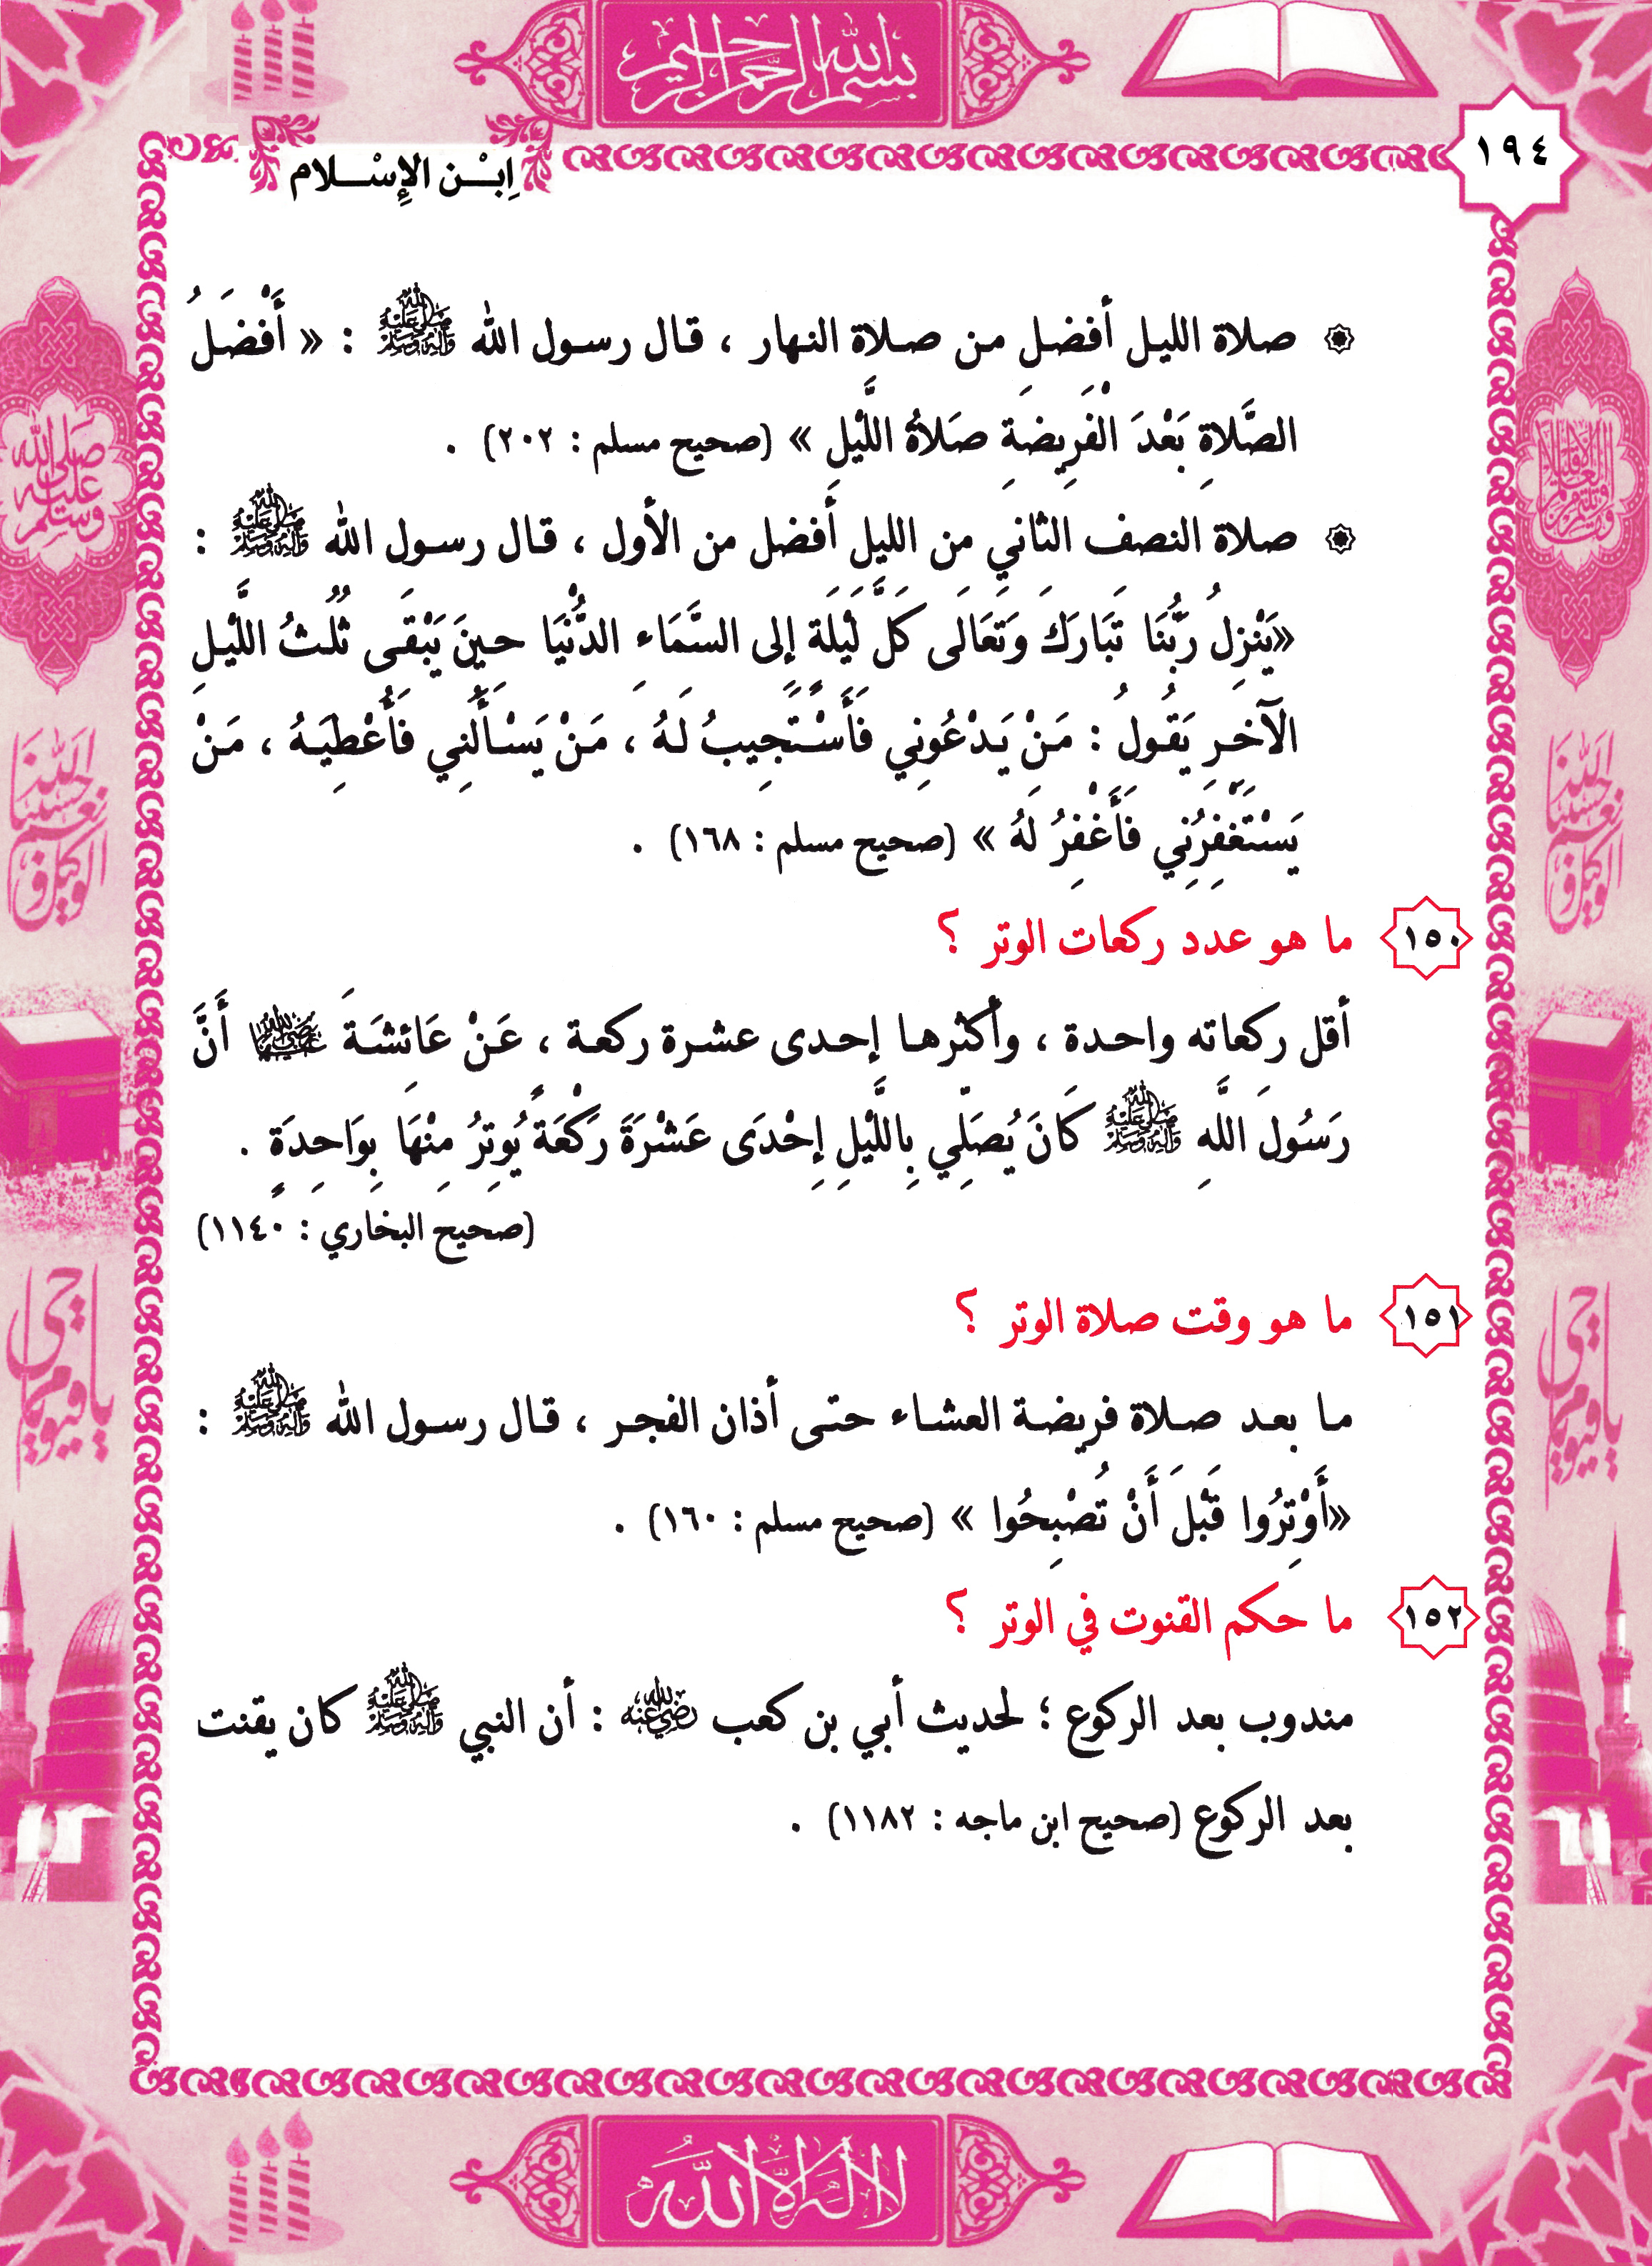 بسم الله الرحمن الرحيم
١٩٤
اِبْـن الإِسْـلام
صلاة الليل أفضل من صلاة النهار ، قال رسول الله ﷺ : « أَفْضَلُ
الصَّلاةِ بَعْدَ الْفَرِيضَةِ صَلاةُ اللَّيْلِ » (صحيح مسلم : ٢٠٢) .
صلاة النصف الثاني من الليل أفضل من الأول ، قال رسول الله ﷺ :
«يَنْزِلُ رَبُّنَا تَبَارَكَ وَتَعَالَى كَلَّ لَيْلَةٍ إلى السَّمَاءِ الدُّنْيَا حِينَ يَبْقَى ثُلُثُ اللَّيْلِ
الآخِرِ يَقُولُ : مَنْ يَدْعُونِي فَأَسْتَجِيبُ لَهُ ، مَنْ يَسْأَلُنِي فَأُعْطِيَهُ ، مَنْ
يَسْتَغْفِرُنِي فَأَغْفِرُ لَهُ » (صحيح مسلم : ١٦٨) .
١٥٠ ما هو عدد ركعات الوتر ؟
أقل ركعاته واحدة ، وأكثرها إحدى عشرة ركعة ، عَنْ عَائشَةَ رضي الله عنها أَنَّ
رَسُولَ اللَّهِ ﷺ كَانَ يُصَلِّي بِاللَّيْلِ إِحْدَى عَشْرَةَ رَكْعَةً يُوتِرُ مِنْهَا بِوَاحِدَةٍ .
(صحيح البخاري : ١١٤٠)
١٥١ ما هو وقت صلاة الوتر ؟
ما بعد صلاة فريضة العشاء حتى أذان الفجر ، قال رسول الله ﷺ :
«أَوْتِرُوا قَبْلَ أَنْ تُصْبِحُوا » (صحيح مسلم : ١٦٠) .
١٥٢ ما حكم القنوت في الوتر ؟
مندوب بعد الركوع ؛ لحديث أبي بن كعب رضي الله عنه : أن النبي ﷺ كان يقنت
بعد الركوع (صحيح ابن ماجه : ١١٨٢) .
لا إله إلا الله